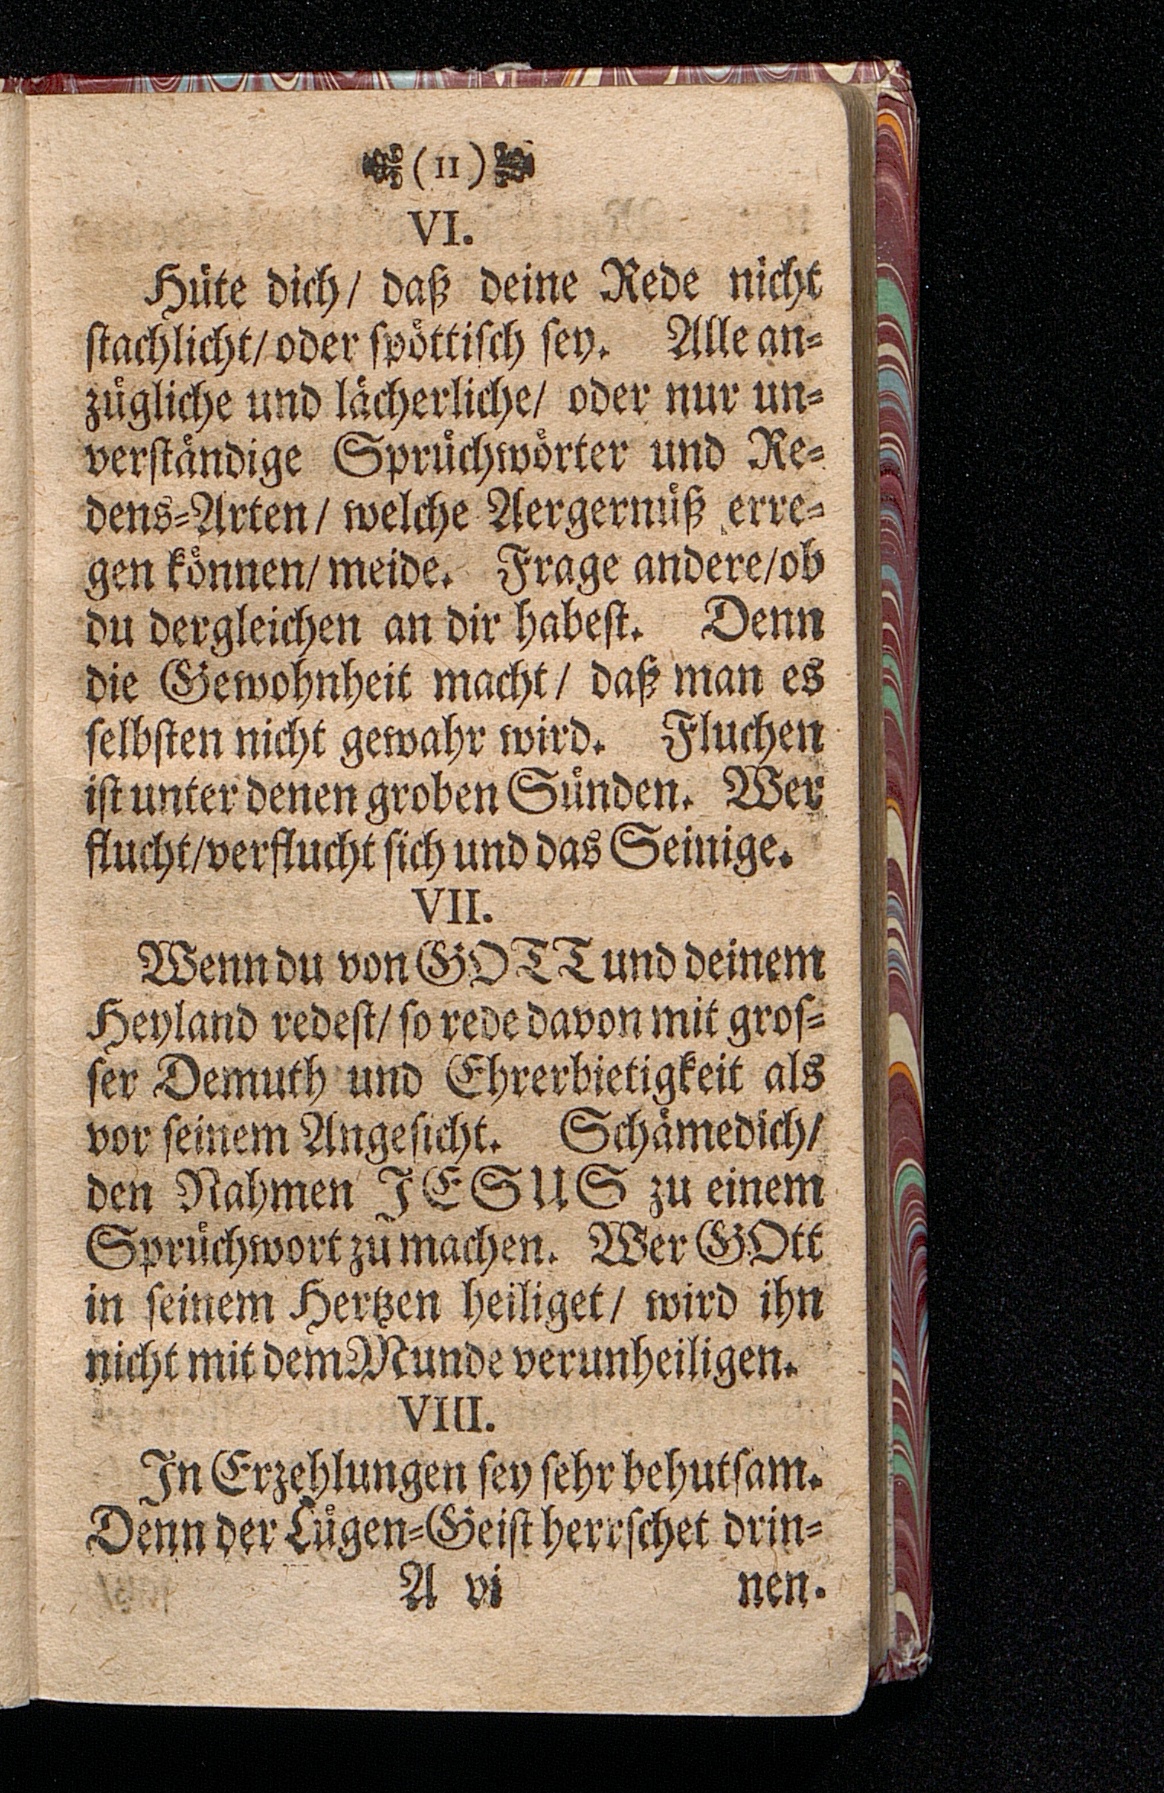 (11)
VI.
Hüte dich/ daß deine Rede nicht
stachlicht/ oder spöttisch sey. Alle an-
zügliche und lächerliche/ oder nur un-
verständige Sprüchwörter und Re-
dens-Arten/ welche Aergernüß erre-
gen können/ meide. Frage andere/ ob
du dergleichen an dir habest. Denn
die Gewohnheit macht/ daß man es
selbsten nicht gewahr wird. Fluchen
ist unter denen groben Sünden. Wer
flucht/ verflucht sich und das Seinige.
VII.
Wenn du von GOTT und deinem
Heyland redest/ so rede davon mit gros-
ser Demuth und Ehrerbietigkeit als
vor seinem Angesicht. Schäme dich/
den Nahmen JESUS zu einem
Sprüchwort zu machen. Wer GOtt
in seinem Hertzen heiliget/ wird ihn
nicht mit dem Munde verunheiligen.
VIII.
In Erzehlungen sey sehr behutsam.
Denn der Lügen-Geist herrschet drin-
A vi nen.